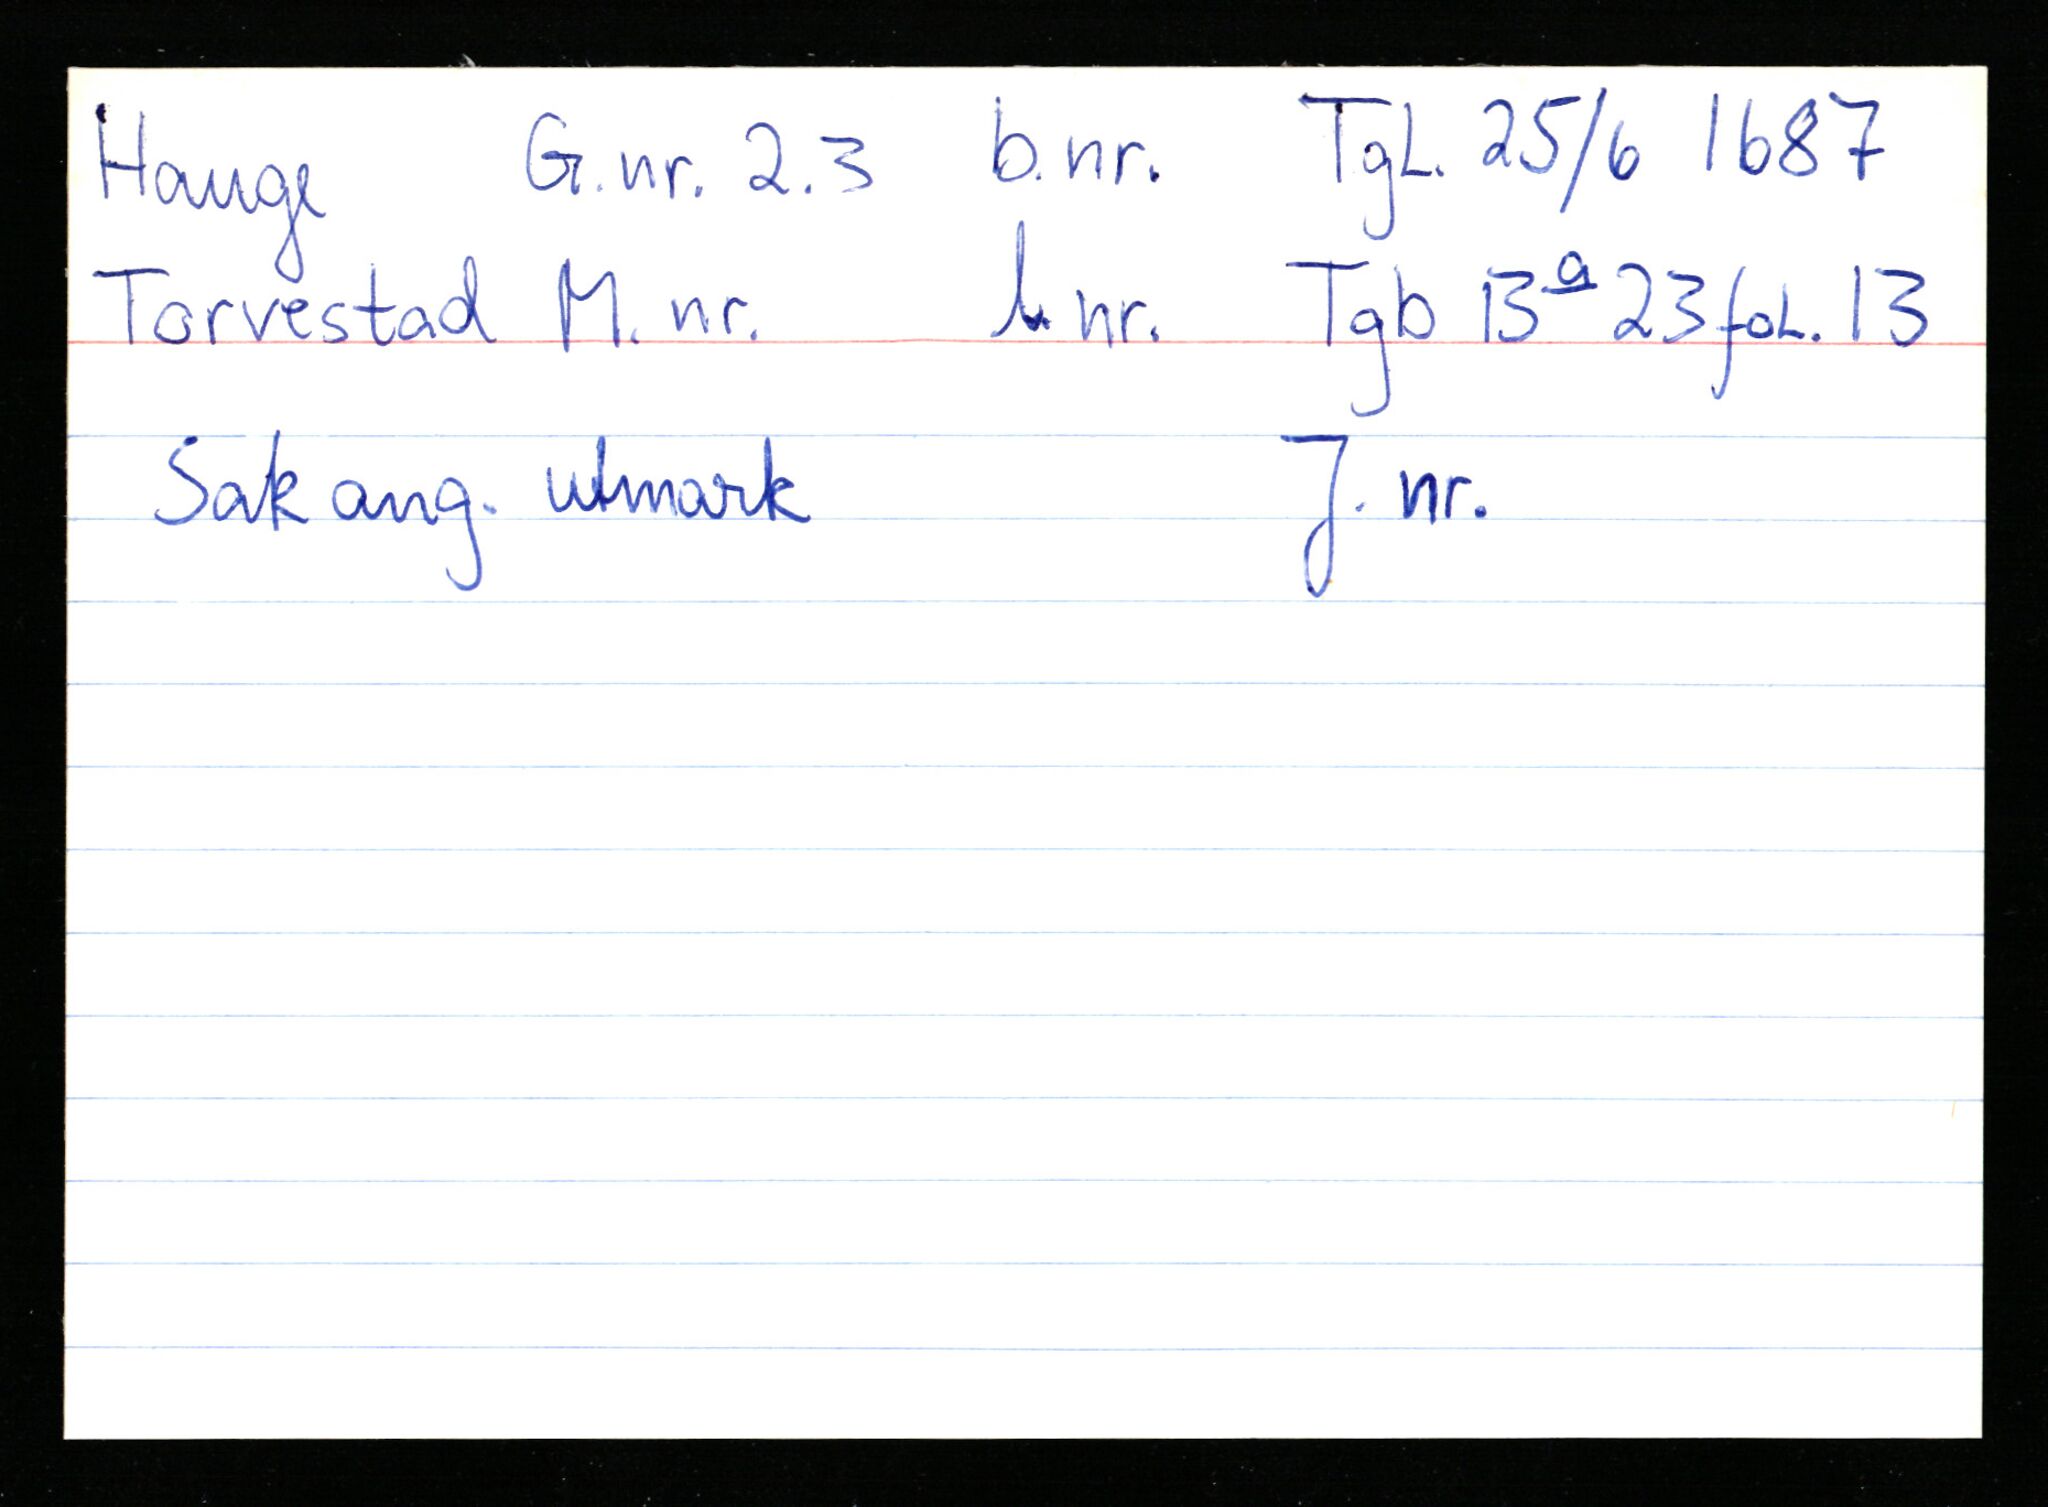 Hauge G.nr. 2.3 b.nr. TgL. 25/6 1687
Torvestad M. nr. l. nr. Tgb 13ª 23 foL. 13
Sak ang. utmark J. nr.